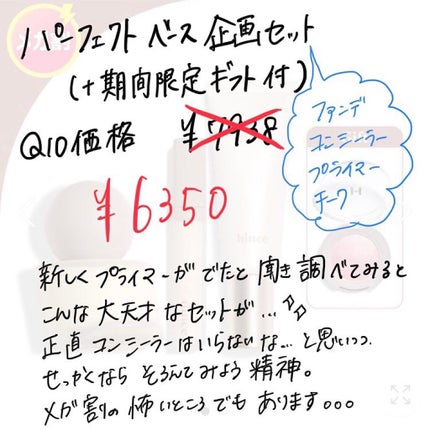 パーフェクト ベース 企画セット
(+期間限定ギフト付)
Q10価格 ¥7938
¥6350
ファンデ
コンシーラー
プライマー
チーク
hince
新しくプライマーがでたと聞き調べてみると
こんな大天才なセットが...
正直コンシーラーはいらないな...と思いつつ
せっかくなら そろえてみよう精神。
メガ割の怖いところでもあります。。。